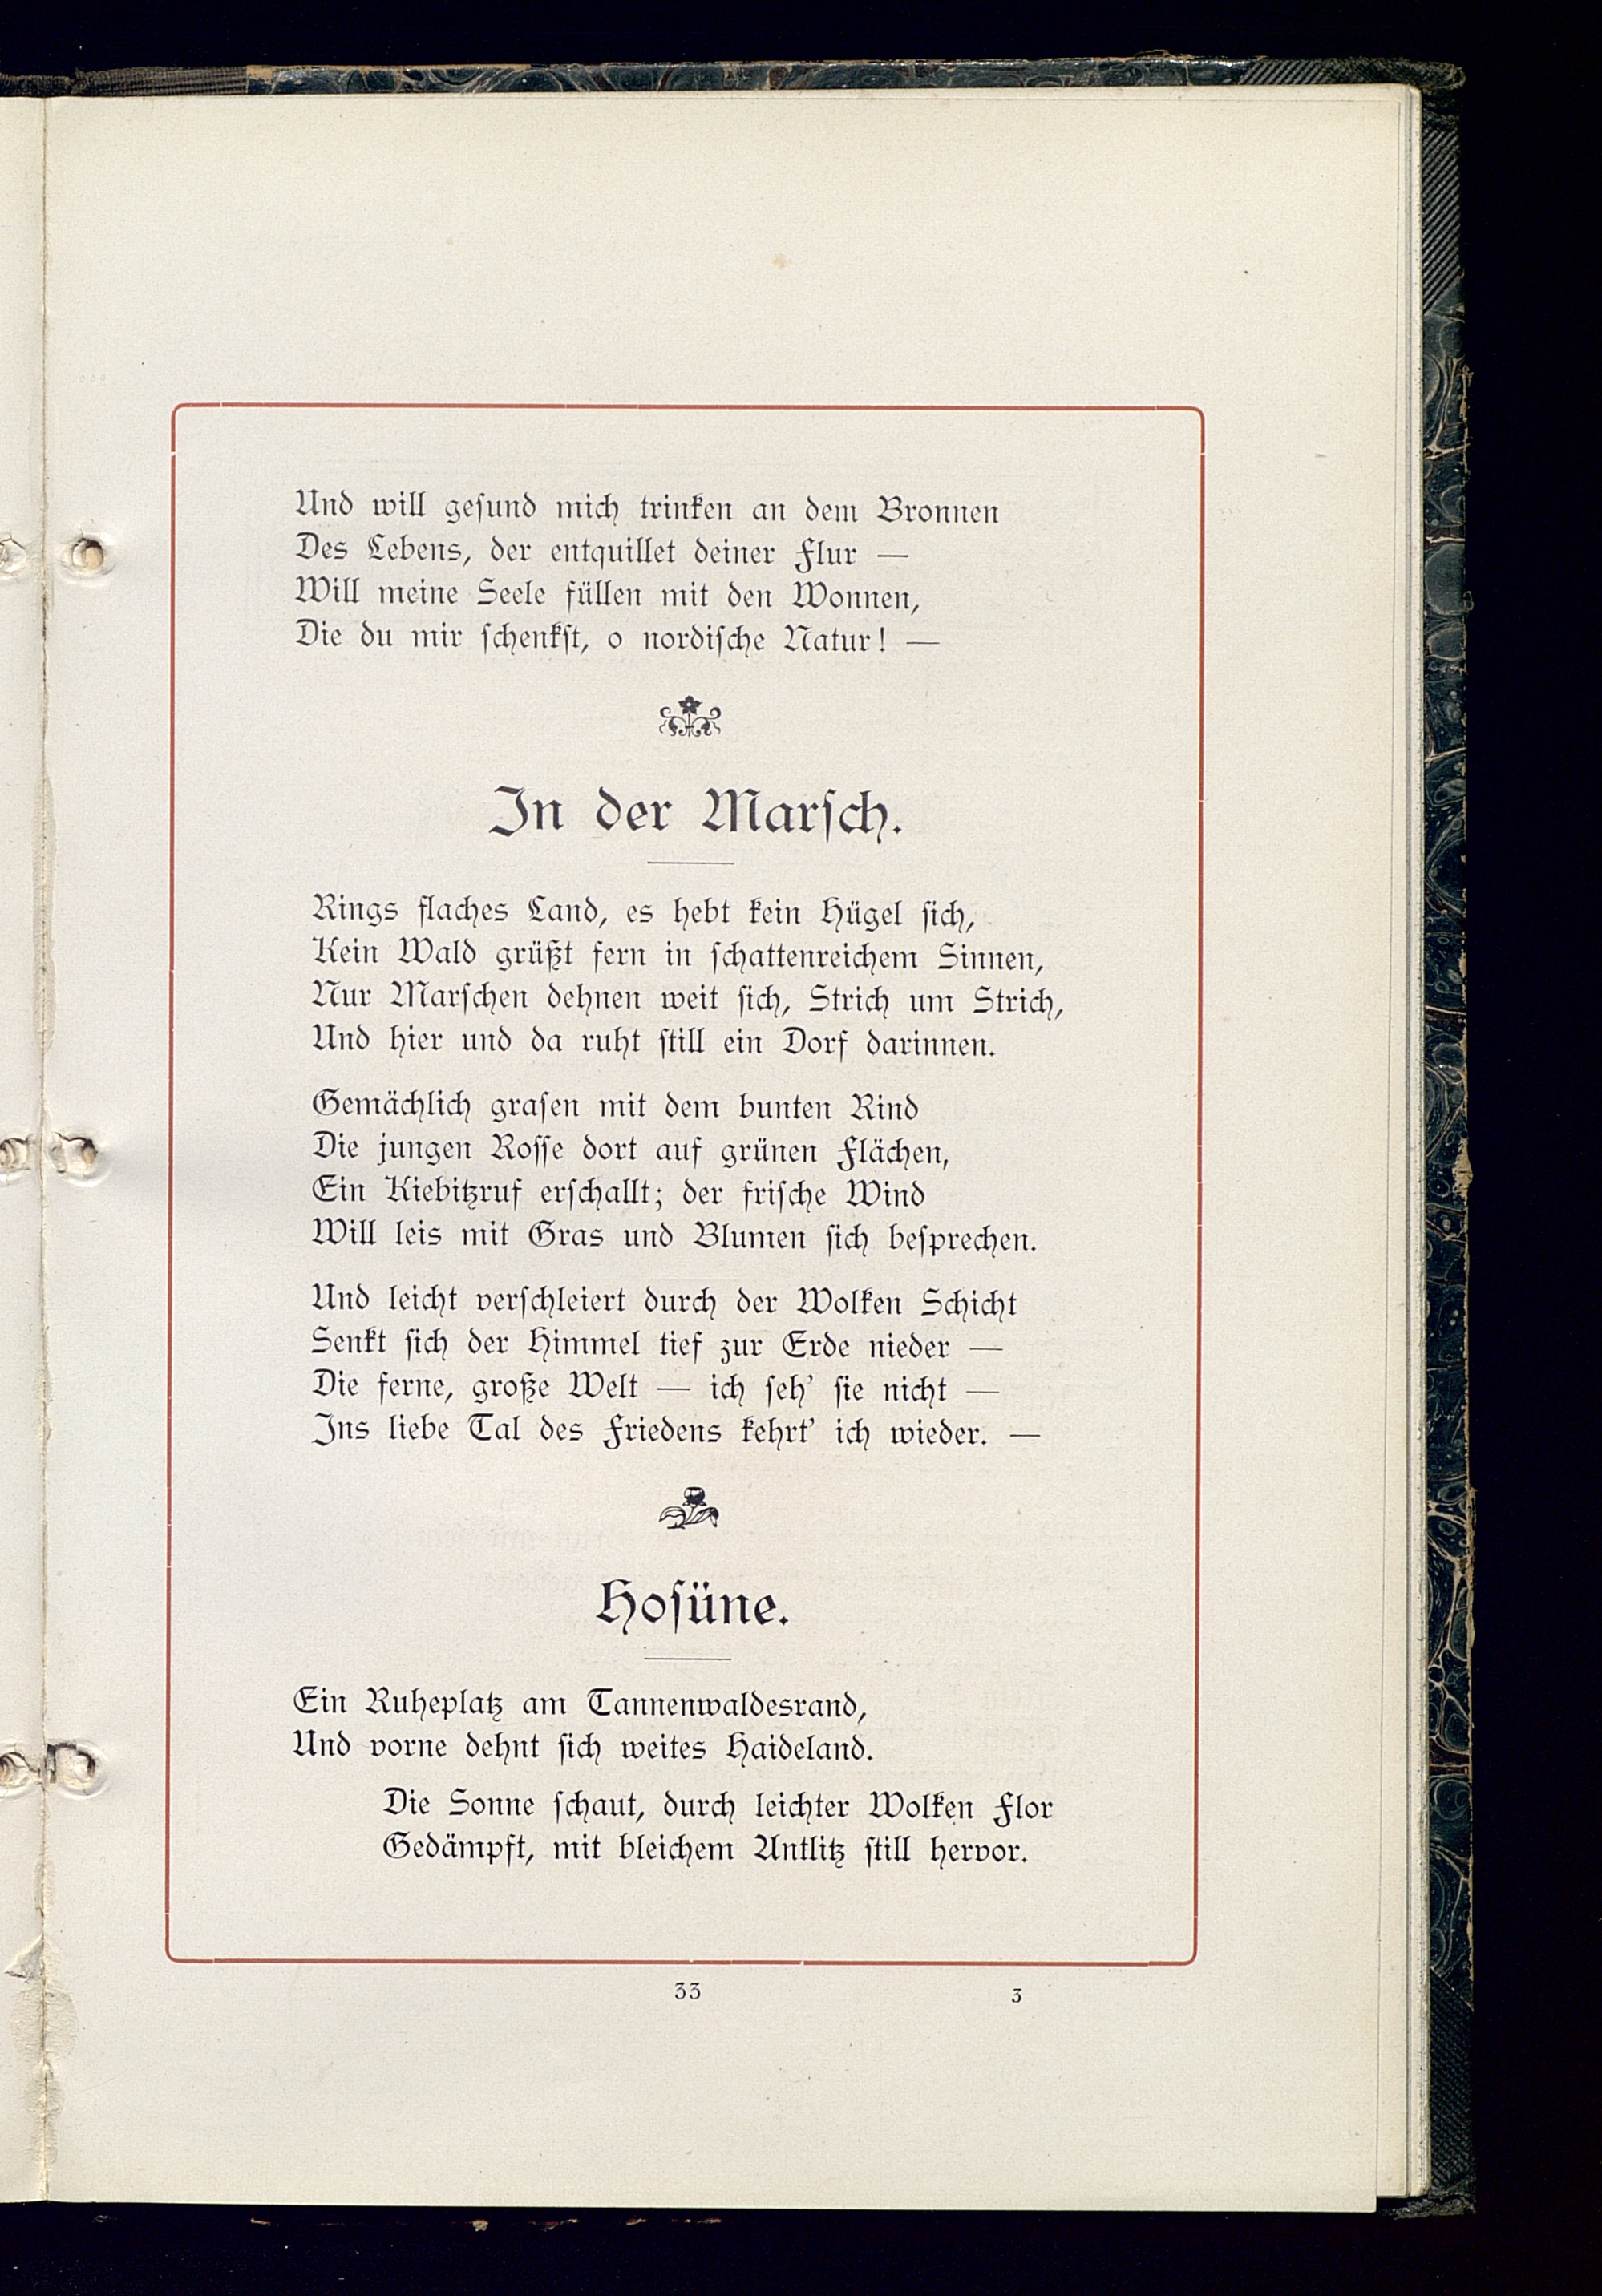 Und will geſund mich trinken an dem Bronnen
Des Lebens, der entquillet deiner Flur —
Will meine Seele füllen mit den Wonnen,
Die du mir ſchenkſt, o nordiſche Natur! —
In der Marſch.
Rings flaches Land, es hebt kein Hügel ſich,
Kein Wald grüßt fern in ſchattenreichem Sinnen,
Nur Marſchen dehnen weit ſich, Strich um Strich,
Und hier und da ruht ſtill ein Dorf darinnen.
Gemächlich graſen mit dem bunten Rind
Die jungen Roſſe dort auf grünen Flächen,
Ein Kiebitzruf erſchallt; der friſche Wind
Will leis mit Gras und Blumen ſich beſprechen.
Und leicht verſchleiert durch der Wolken Schicht
Senkt ſich der Himmel tief zur Erde nieder —
Die ferne, große Welt — ich ſeh' ſie nicht —
Ins liebe Tal des Friedens kehrt' ich wieder. —
Hoſüne.
Ein Ruheplatz am Tannenwaldesrand,
Und vorne dehnt ſich weites Haideland.
Die Sonne ſchaut, durch leichter Wolken Flor
Gedämpft, mit bleichem Antlitz ſtill hervor.
33 3